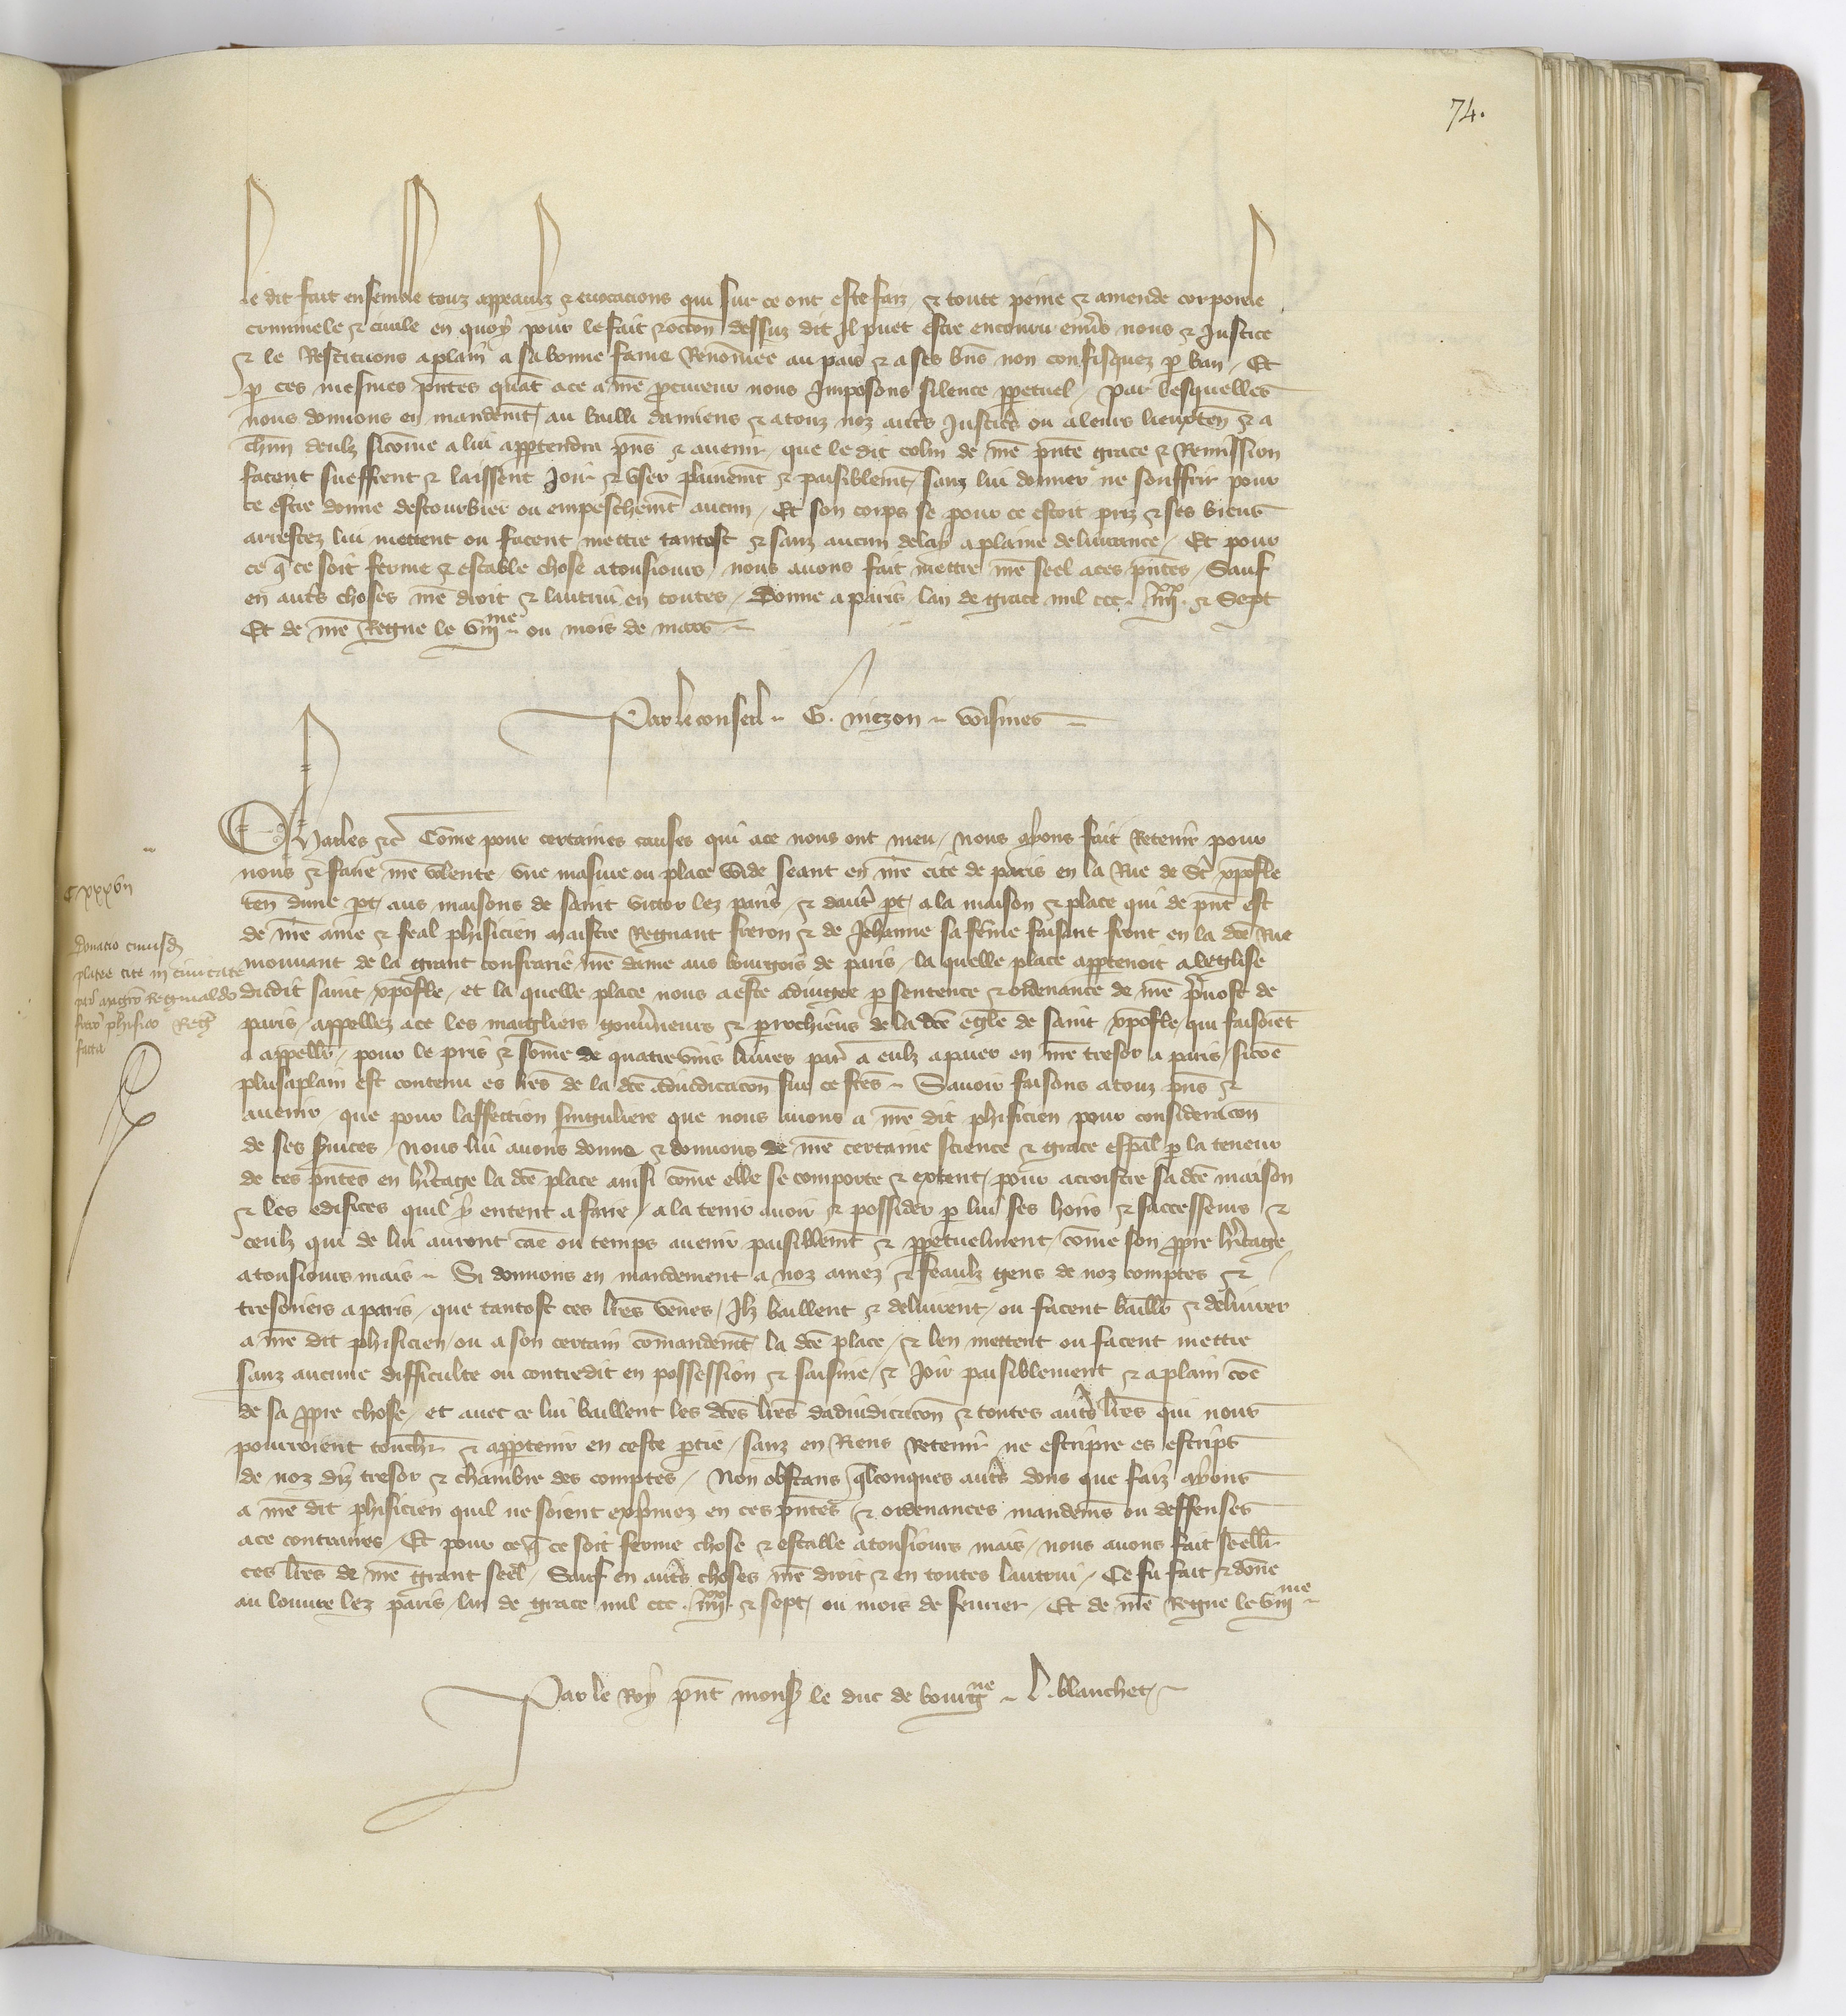 74.
le dit fait ensemble touz appeaulx & euocacions qui sur ce ont este faiz & toute peine & amende corporele
criminele & ciuile en quoy pour le fait & occon dessuz dit Il puet estre encouru enuers nous & Justice
& le Restituons a plain a sa bonne fame Renommee au pais & a ses biens non confisquez p ban / Et
p ces mesmes pntes quat a ce a nre pcureur nous Imposons silence ppetuel / par lesquelles
nous donnons en mandemt au bailli damiens & a touz noz autres Justicers ou a leurs lieuxten & a
chun deulz sicome a lui appartendra pns & auenir / que le dit colin de nre pnte grace & Remission
facent sueffrent & laissent Joir & vser plainemt & paisiblemt / sanz lui donner ne souffrir pour
ce estre donne destourbier ou empeschemt aucun / Et son corps se pour ce estoit priz & ses biens
arrestez lui mettent ou facent mettre tantost & sanz aucun delay a plaine deliurance / Et pour
ce q ce soit ferme & estable chose a tousiours / nous auons fait mettre nre seel a ces pntes / Sauf
en autres choses nre droit & lautrui en toutes / Donne a paris lan de grace mil ccc . iiijxx . & Sept
Et de nre Regne le viijme ou mois de mars
Par le conseil G. nizon voisines
Charles &c Come pour certaines causes qui a ce nous ont meu / nous ayons fait Retenir pour
nous & faire nre volente vne masure ou place wide seant en nre cite de paris en la Rue de St xpofle
ten dune pt aus maisons de saint victor lez paris / & dautr pt a la maison & place qui de pnt est
de nre ame & feal phisicien maistre Regnaut freron & de Jehanne sa feme faisant front en la dce Rue
mouuant de la grant confrarie nre dame aus bourgois de paris / la quelle place apptenoit a leglise
dudit saint xpofle / et la quelle place nous a este adiugee p sentence & ordenance de nre preuost de
paris / appellez a ce les margliers gouuneurs & prochiens de la dce egle de saint xpofle / qui faisoient
a appeller / pour le pris & some de quatrevins liures par a eulz a paier en nre tresor a paris / sicoe
plus a plain est contenu es lres de la dce adiudicacon sur ce fces Sauoir faisons a touz pns &
auenir / que pour laffection singuliere que nous auons a nre dit phisicien pour consideracon
de ses suices / nous lui auons donne & donnons de nre certaine science & grace espal p la teneur
de ces pntes en hritage la dce place ainsi come elle se comporte & extent / pour acroistre sa dce maison
& les edifices quil y entent a faire / a la tenir auoir & possider p lui ses hoirs & successeurs &
ceulz qui de lui auront cae ou temps auenir paisiblemt & ppetuelment / come son ppre hritage
a tousiours mais Si donnons en mandement a noz amez & feaulz gens de noz comptes &
tresoriers a paris / que tantost ces lres veues / Ilz baillent & deliurent / ou facent bailler & deliurer
a nre dit phisicien / ou a son certain comandemt la dce place / & len mettent ou facent mettre
sanz aucune difficulte ou contredit en possession & saisine / & Joir paisiblement & a plain coe
de sa ppre chose / et auec ce lui baillent les dces lres dadiudicacon & toutes autres lres qui nous
pourroient touchr & apptenir en ceste ptie / sanz en Riens Retenir ne escripre es escripts
de noz diz tresor & chambre des comptes / Non obstans qlconques autres dons que faiz ayons
a nre dit phisicien quil ne soient exprimez en ces pntes & ordenances mandems ou deffenses
a ce contraires / Et pour ce q ce soit ferme chose & estable a tousiours mais / nous auons fait seeller
ces lres de nre grant seel / Sauf en autres choses nre droit & en toutes lautrui / Ce fu fait & done
au louure lez paris / lan de grace mil ccc . iiijxx . & sept / ou mois de feurier / Et de nre Regne le viijme
Par le Roy pnt monsr le duc de bourgne L. blanchet
Cxxxvii
Donacio cuiusd
platee site in ciuitate
par magro Reginaldo
freron phisico Regis
facta